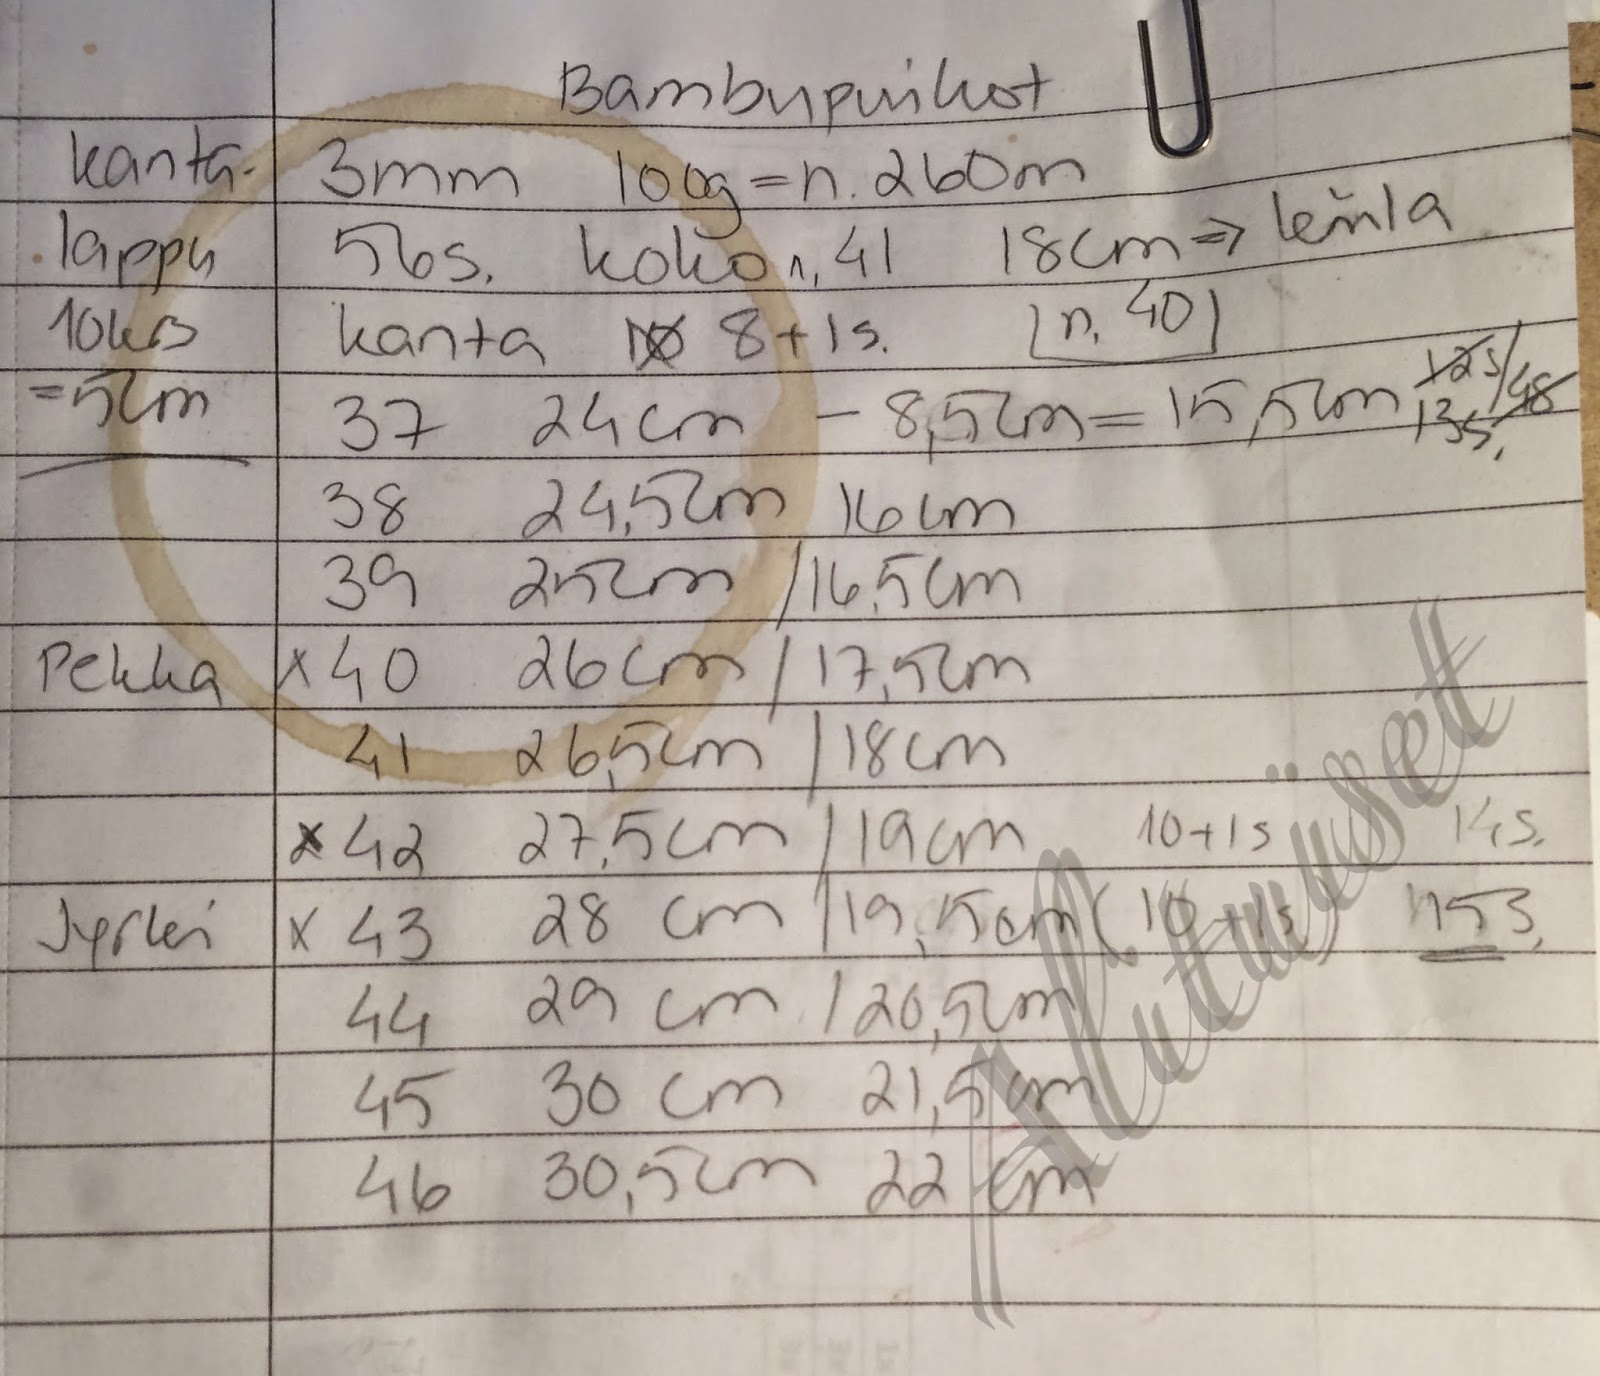 Bambupuikot
kanta- 3mm 100g = n. 260m
lappu 56s. koko n. 41 18cm ⇒
10krs kanta 8+1s. n. 40
=5cm 37 24cm – 8,5cm = 15,5cm 12s/48 13s.
38 24,5cm 16cm
39 25cm /16,5cm
Pekka x 40 26cm /17,5cm
41 26,5cm /18cm
x 42 27,5cm /19cm 10+1s 14s.
Jyrki x 43 28 cm /19,5cm ( 10+1s 15s.
44 29 cm /20,5cm
45 30 cm 21,5cm
46 30,5cm 22 cm